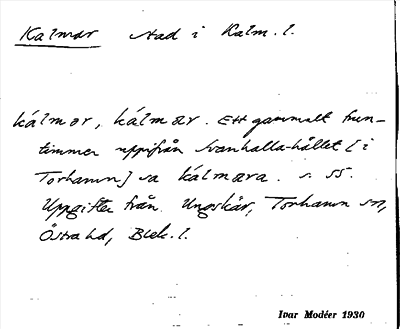 Kalmar stad i Kalm. l.
kálmar, kálmar. Ett gammalt frun-
timmer uppifrån Svanhalla-hållet [i
Torhamn] sa kálmara. s. 55.
Uppgifter från Ungskär, Torhamn sn,
Östra hd, Blek. l.
Ivar Modéer 1930